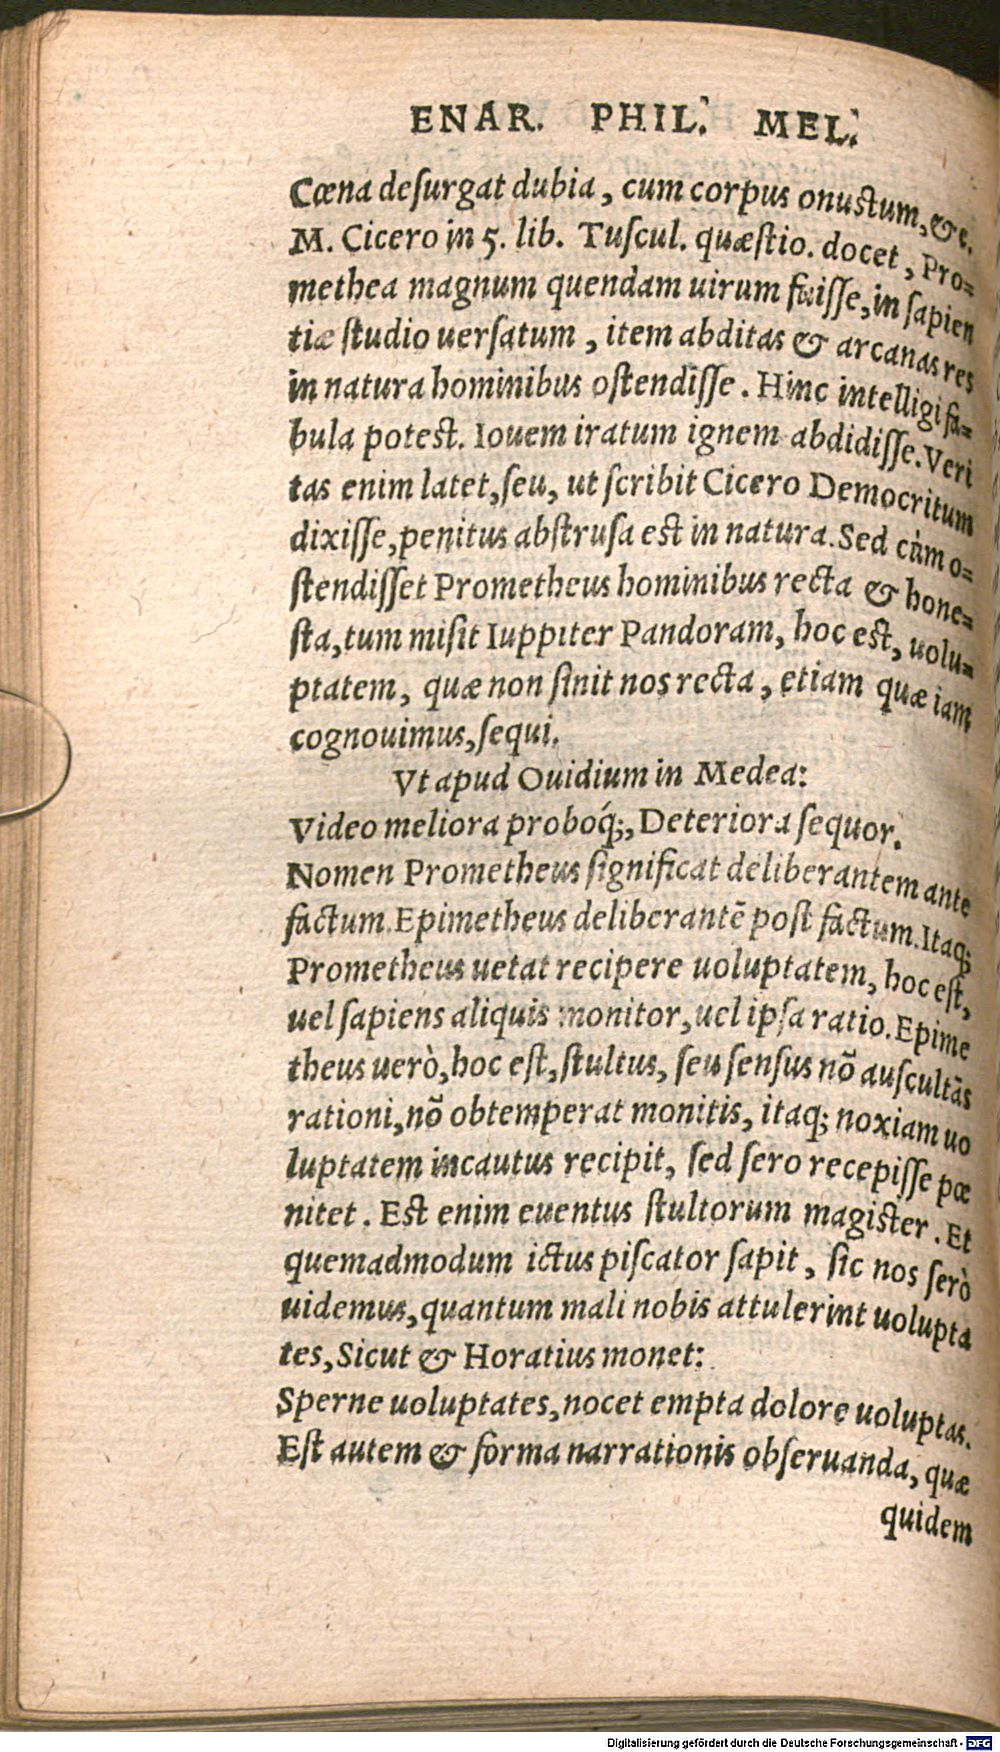 ENAR. PHIL. MEL.
Cœna desurgat dubia, cum corpus onustum, &c.
M. Cicero in 5. lib. Tuscul. quæstio. docet, Pro=
methea magnum quendam uirum fuisse, in sapien
tiæ studio uersatum, item abditas & arcanas res
in natura hominibus ostendisse. Hinc intelligi fa=
bula potest. Iouem iratum ignem abdidisse. Veri
tas enim latet, seu, ut scribit Cicero Democritum
dixisse, penitus abstrusa est in natura. Sed cùm o=
stendisset Prometheus hominibus recta & hone=
sta, tum misit Iuppiter Pandoram, hoc est, uolu=
ptatem, quæ non sinit nos recta, etiam quæ iam
cognouimus, sequi.
Vt apud Ouidium in Medea:
Video meliora proboq́;, Deteriora sequor.
Nomen Prometheus significat deliberantem ante
factum. Epimetheus deliberantē post factum. Itaq;
Prometheus uetat recipere uoluptatem, hoc est,
uel sapiens aliquis monitor, uel ipsa ratio. Epime
theus uerò, hoc est, stultus, seu sensus nō auscultās
rationi, nō obtemperat monitis, itaq; noxiam uo
luptatem incautus recipit, sed sero recepisse pœ
nitet. Est enim euentus stultorum magister. Et
quemadmodum ictus piscator sapit, sic nos serò
uidemus, quantum mali nobis attulerint uolupta
tes, Sicut & Horatius monet:
Sperne uoluptates, nocet empta dolore uoluptas.
Est autem & forma narrationis obseruanda, quæ
quidem
Digitalisierung gefördert durch die Deutsche Forschungsgemeinschaft - DFG